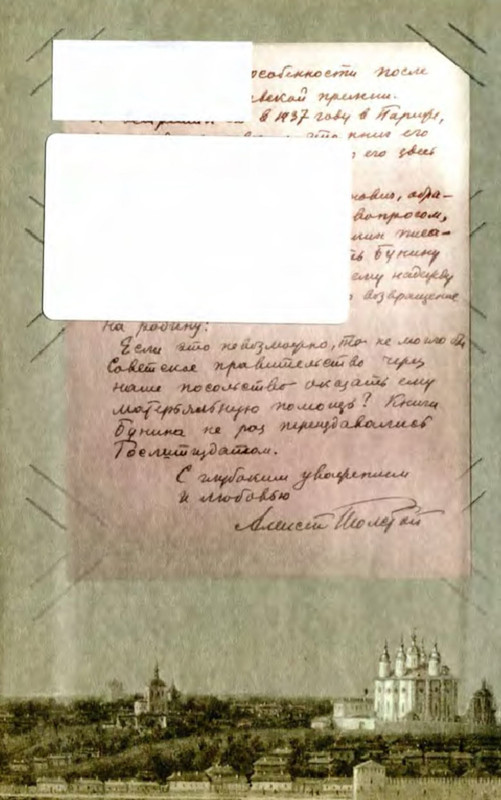 особенности после
вской премии.
в 1937 году в Париже,
что книг его
его здесь
обра-
вопросом,
писа-
ть Бунину
ему надежду
возвращение
на родину?
Если это невозможно, то не могло бы
Советское правительство через
наше посольство оказать ему
матерьяльную помощь? Книги
Бунина не раз переиздавались
Гослитиздатом.
С глубоким уважением
и любовью
Алексей Толстой